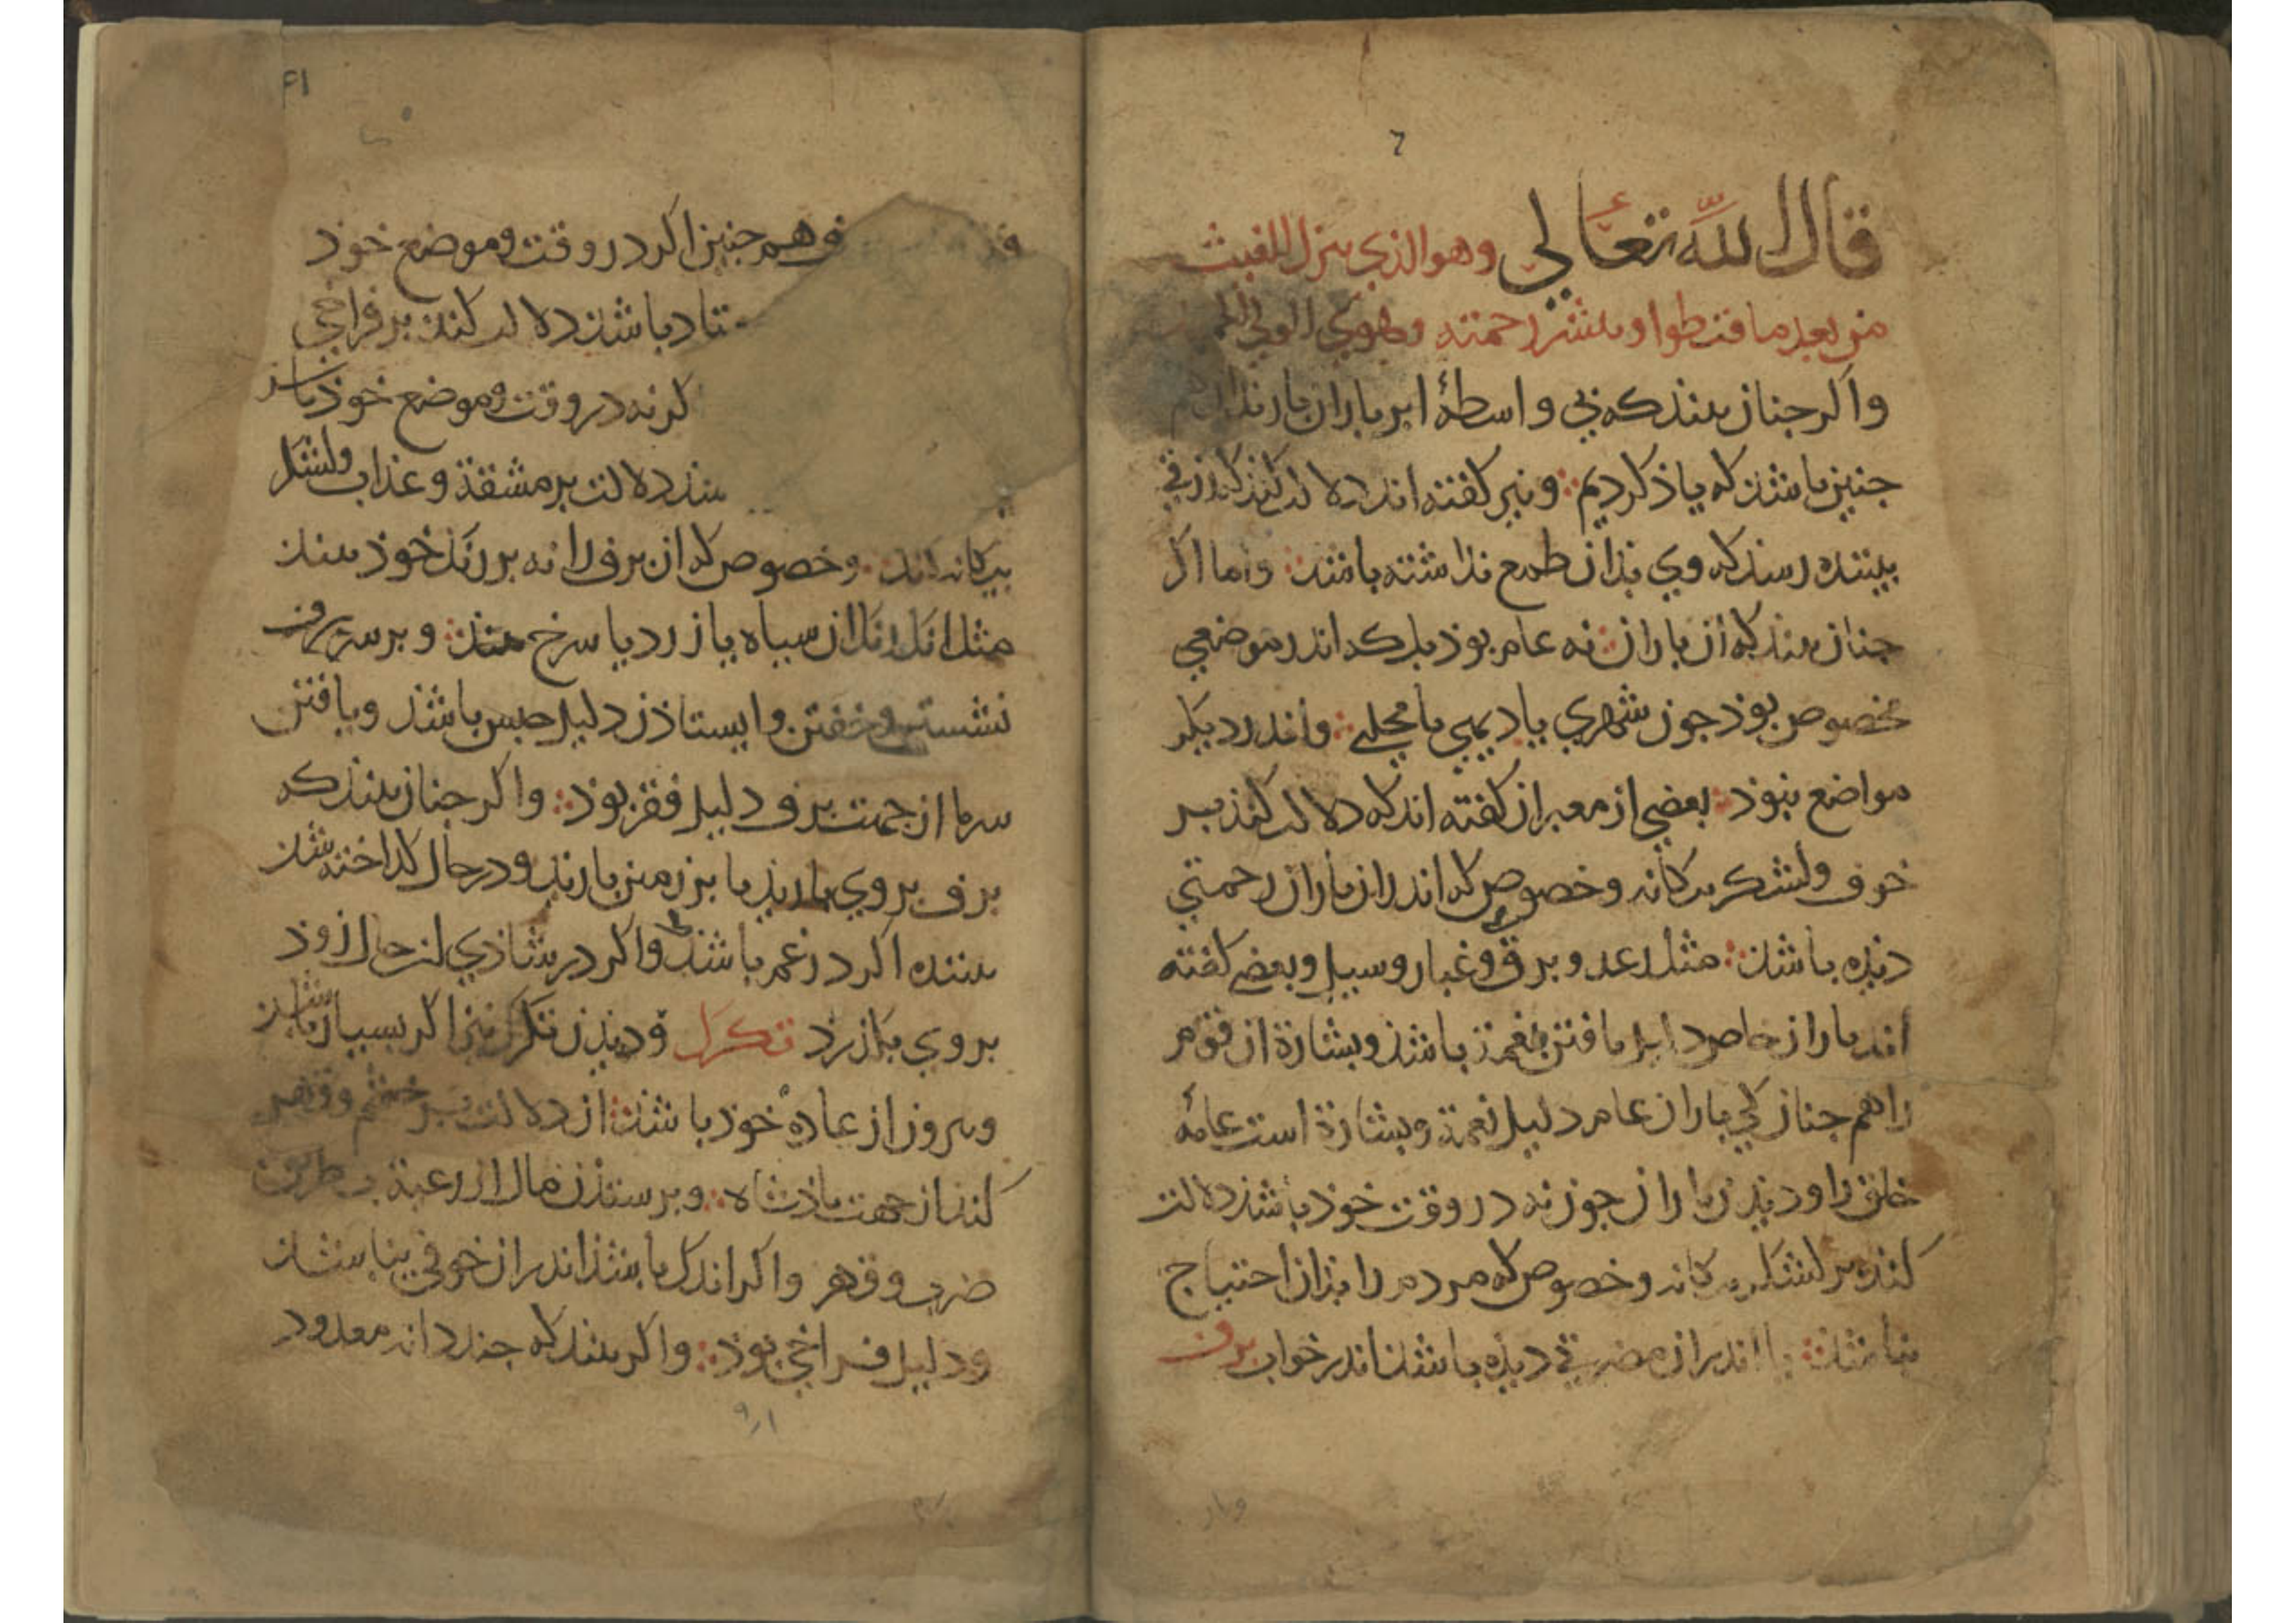 قال الله تعالى وهو الذي ينزل الغيث
من بعد ما قنطوا وينشر رحمته وهو الولي
واكر جنان بيند كه بي واسطهٔ ابر باران بارند
جنين باشد كه ياذ كرديم ؞ ونيز كفته اند دلالت كند كه رزقي
بيننده رسد كه وي بذان طمع نداشته باشد ؞ واما اكر
جنان بيند كه ان باران ؞ نه عام بوذ بلكه اندر موضعي
مخصوص بوذ جون شهري يا ديهي يا محلي ؞ واندر ديكر
مواضع نبوذ ؞ بعضي از معبران كفته اند كه دلالت كند بر
خوف ولشكر بيكانه وخصوص كه اندر ان باران زحمتي
ديذه باشد ؞ مثل رعد وبرق وغبار وسيل وبعضي كفته
اند باران خاص دليل يافتن نعمة باشد وبشارة از قوم
را هم جنان كي باران عام دليل نعمة وبشارة است عامه
خلق را وديذن باران جون نه در وقت خوذ باشد دلالت
كند بر لشكر بيكانه وخصوص كه مردم را بذان احتياج
نباشد ؞ يا اندر ان مضرتي ديذه باشد اندر خواب برف
٤١
وهم جنين اكر در وقت وموضع خوذ
باشد دلالت كند بر فراخي
كر نه در وقت وموضع خوذ باشد
بيند دلالت بر مشقة وعذاب ولشكر
بيكانه اند ؞ وخصوص كه ان برف را نه بر رنك خوذ بيند
مثل انك رنك ان سياه يا زرد يا سرخ بيند ؞ وبر سر برف
نشستن وخفتن وايستاذن دليل حبس باشد ويافتن
سرما از جهت برف دليل فقر بوذ ؞ واكر جنان بيند كه
برف بر وي بارند يا بر زمين بارند ودر حال كداخته شد
بيننده اكر در غم باشد واكر در شاذي ان حال زوذ
بر وي بكذرد تكرك وديذن تكرك نيز اكر بسيار باشد
وبيرون از عادة خوذ باشد ؞ ان دلالت بر خشم وقهر
كند از جهت باذشاه ؞ وبر ستدن مال از رعية بطريق
ضرب وقهر واكر اندك باشد اندر ان خوفي نباشد
ودليل فراخي بوذ ؞ واكر بيند كه جند دانه معدود